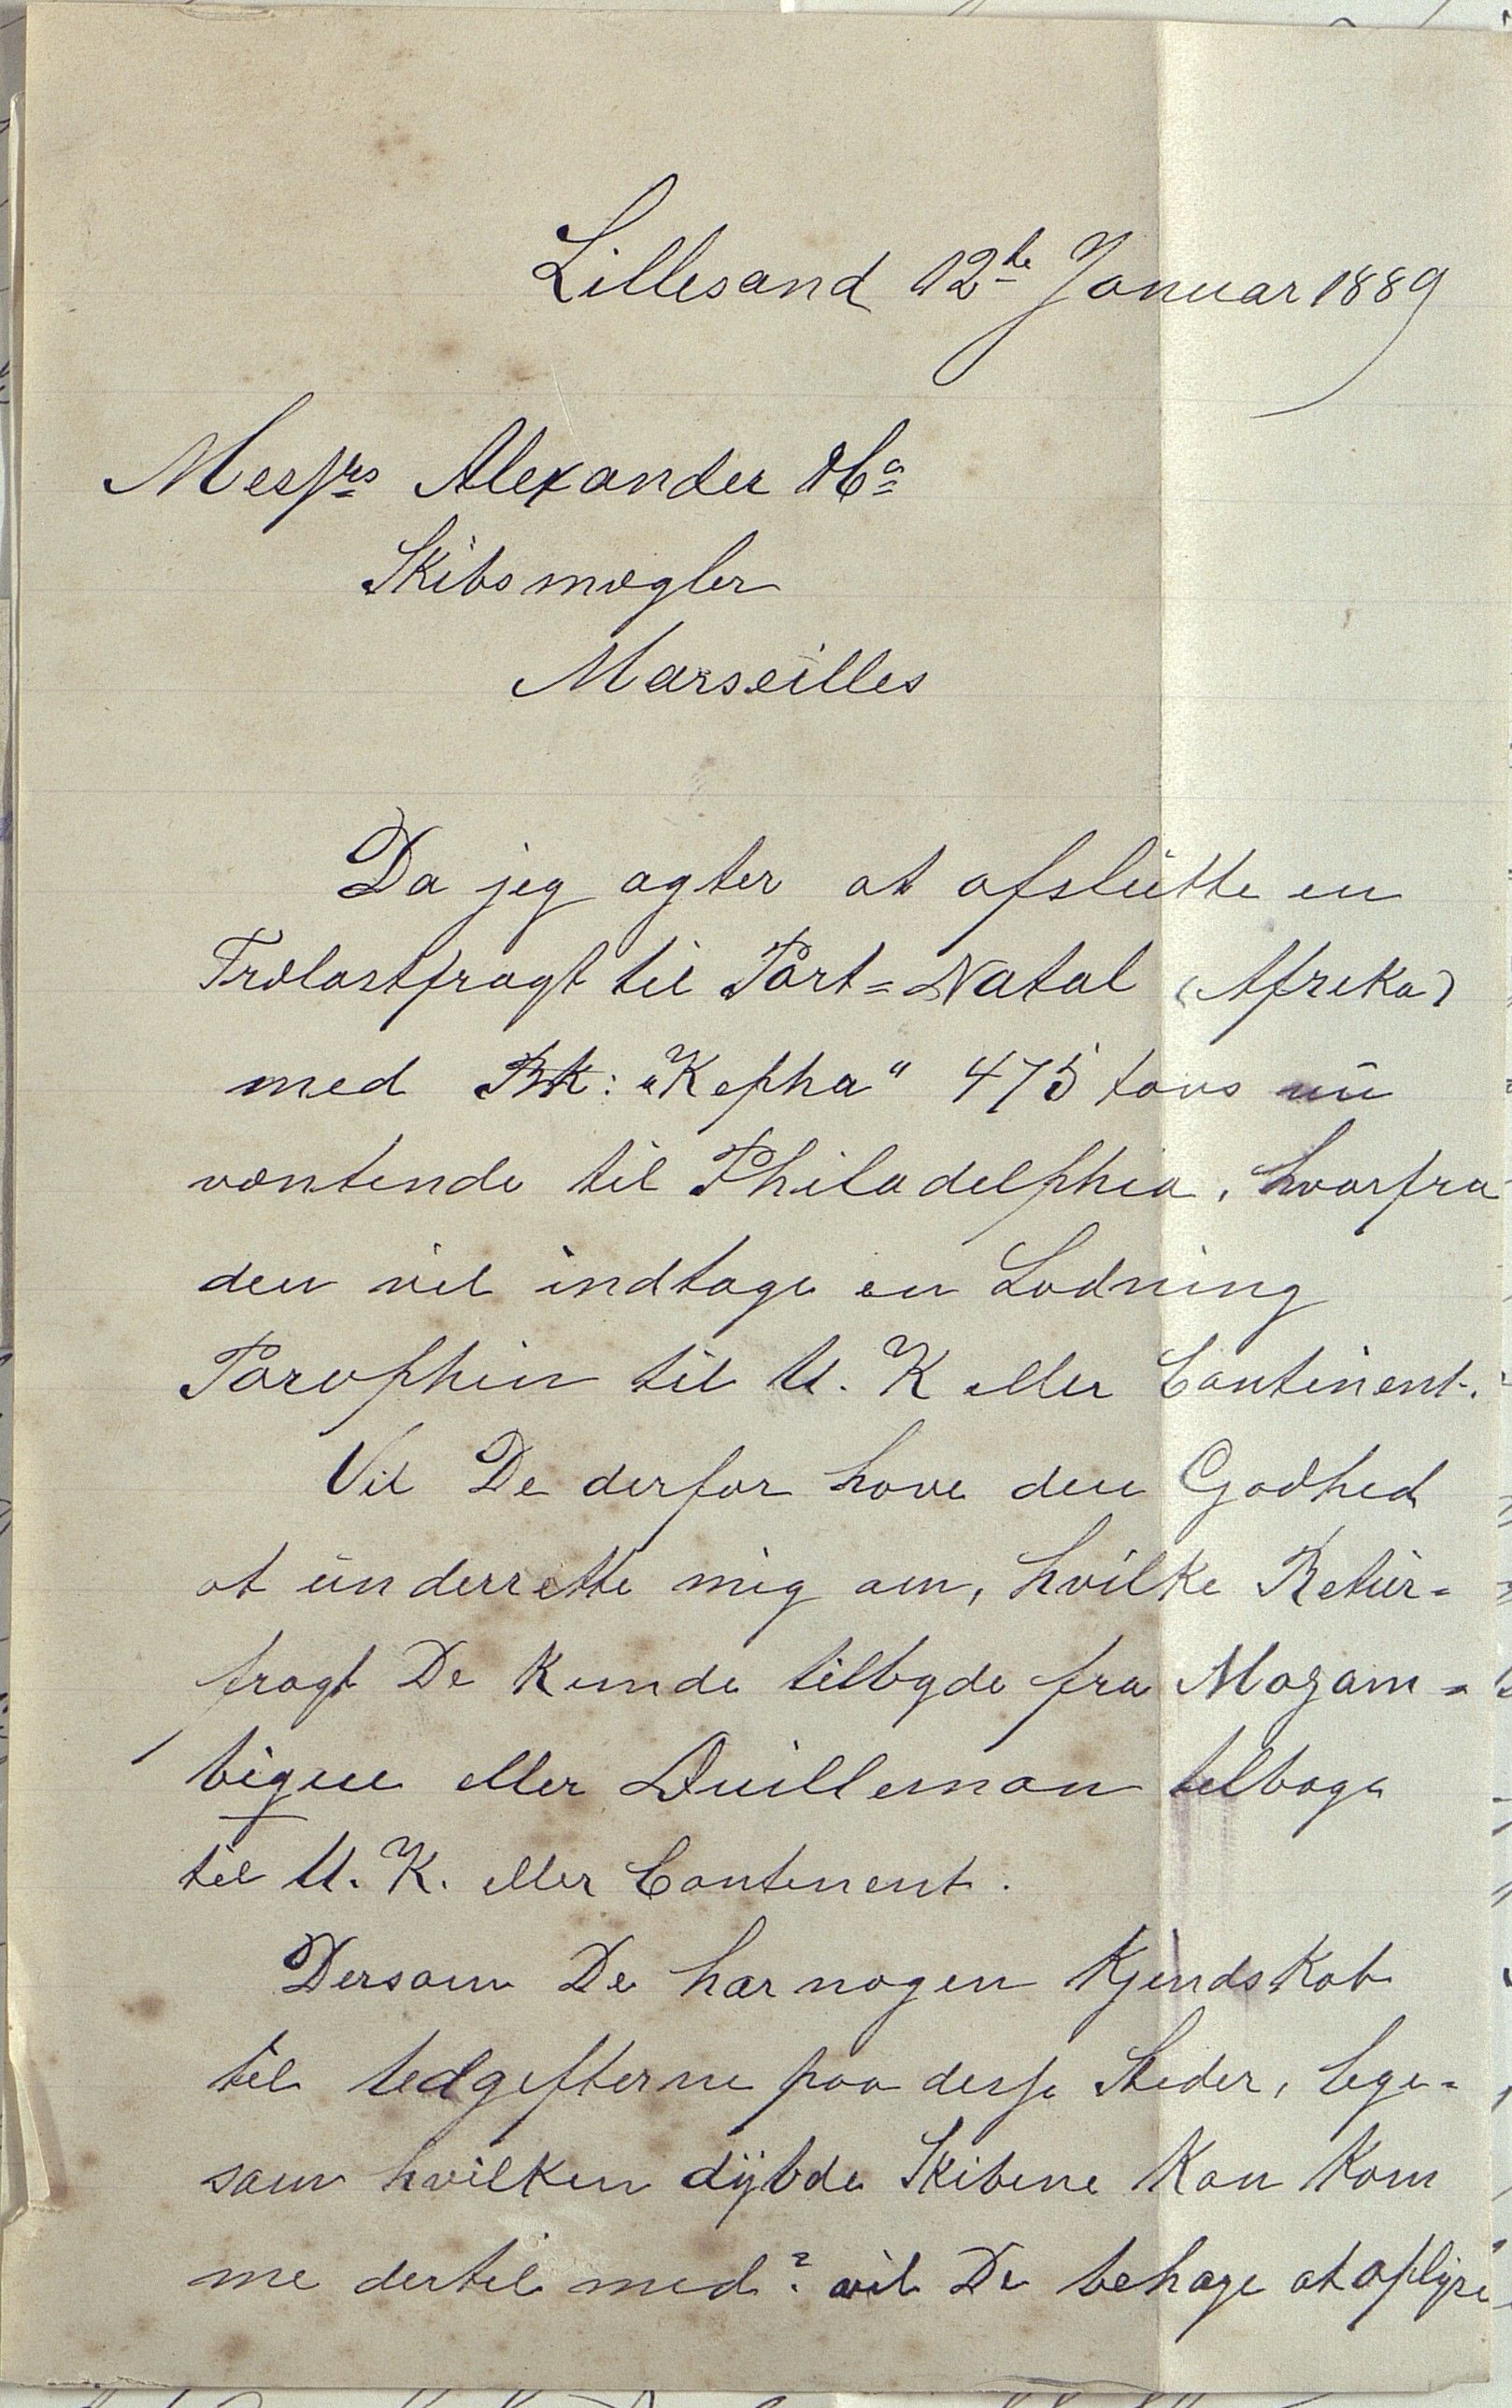 Lillesand 12te Januar 1889
Messrs Alexander & Co
Skibsmægler
Marseilles
Da jeg agter at afslutte en
Trælastfragt til Port=Natal (Afrika)
med Bk: "Kepha" 475 tons nu
ventende til Philadelphia, hvorfra
den vil indtage en Ladning
Paraphin til U. K eller Continent.
Vil De derfor have den Godhed
at underrette mig om, hvilke Retur=
fragt De kunde tilbyde fra Mozam=
bique eller Quilleman tilbage
til U. K. eller Continent.
Dersom De har nogen Kjendskab
til Udgifterne paa disse Steder, lige=
som hvilken dybde Skibene kan kom
me dertil med? vil De behage at oplyse